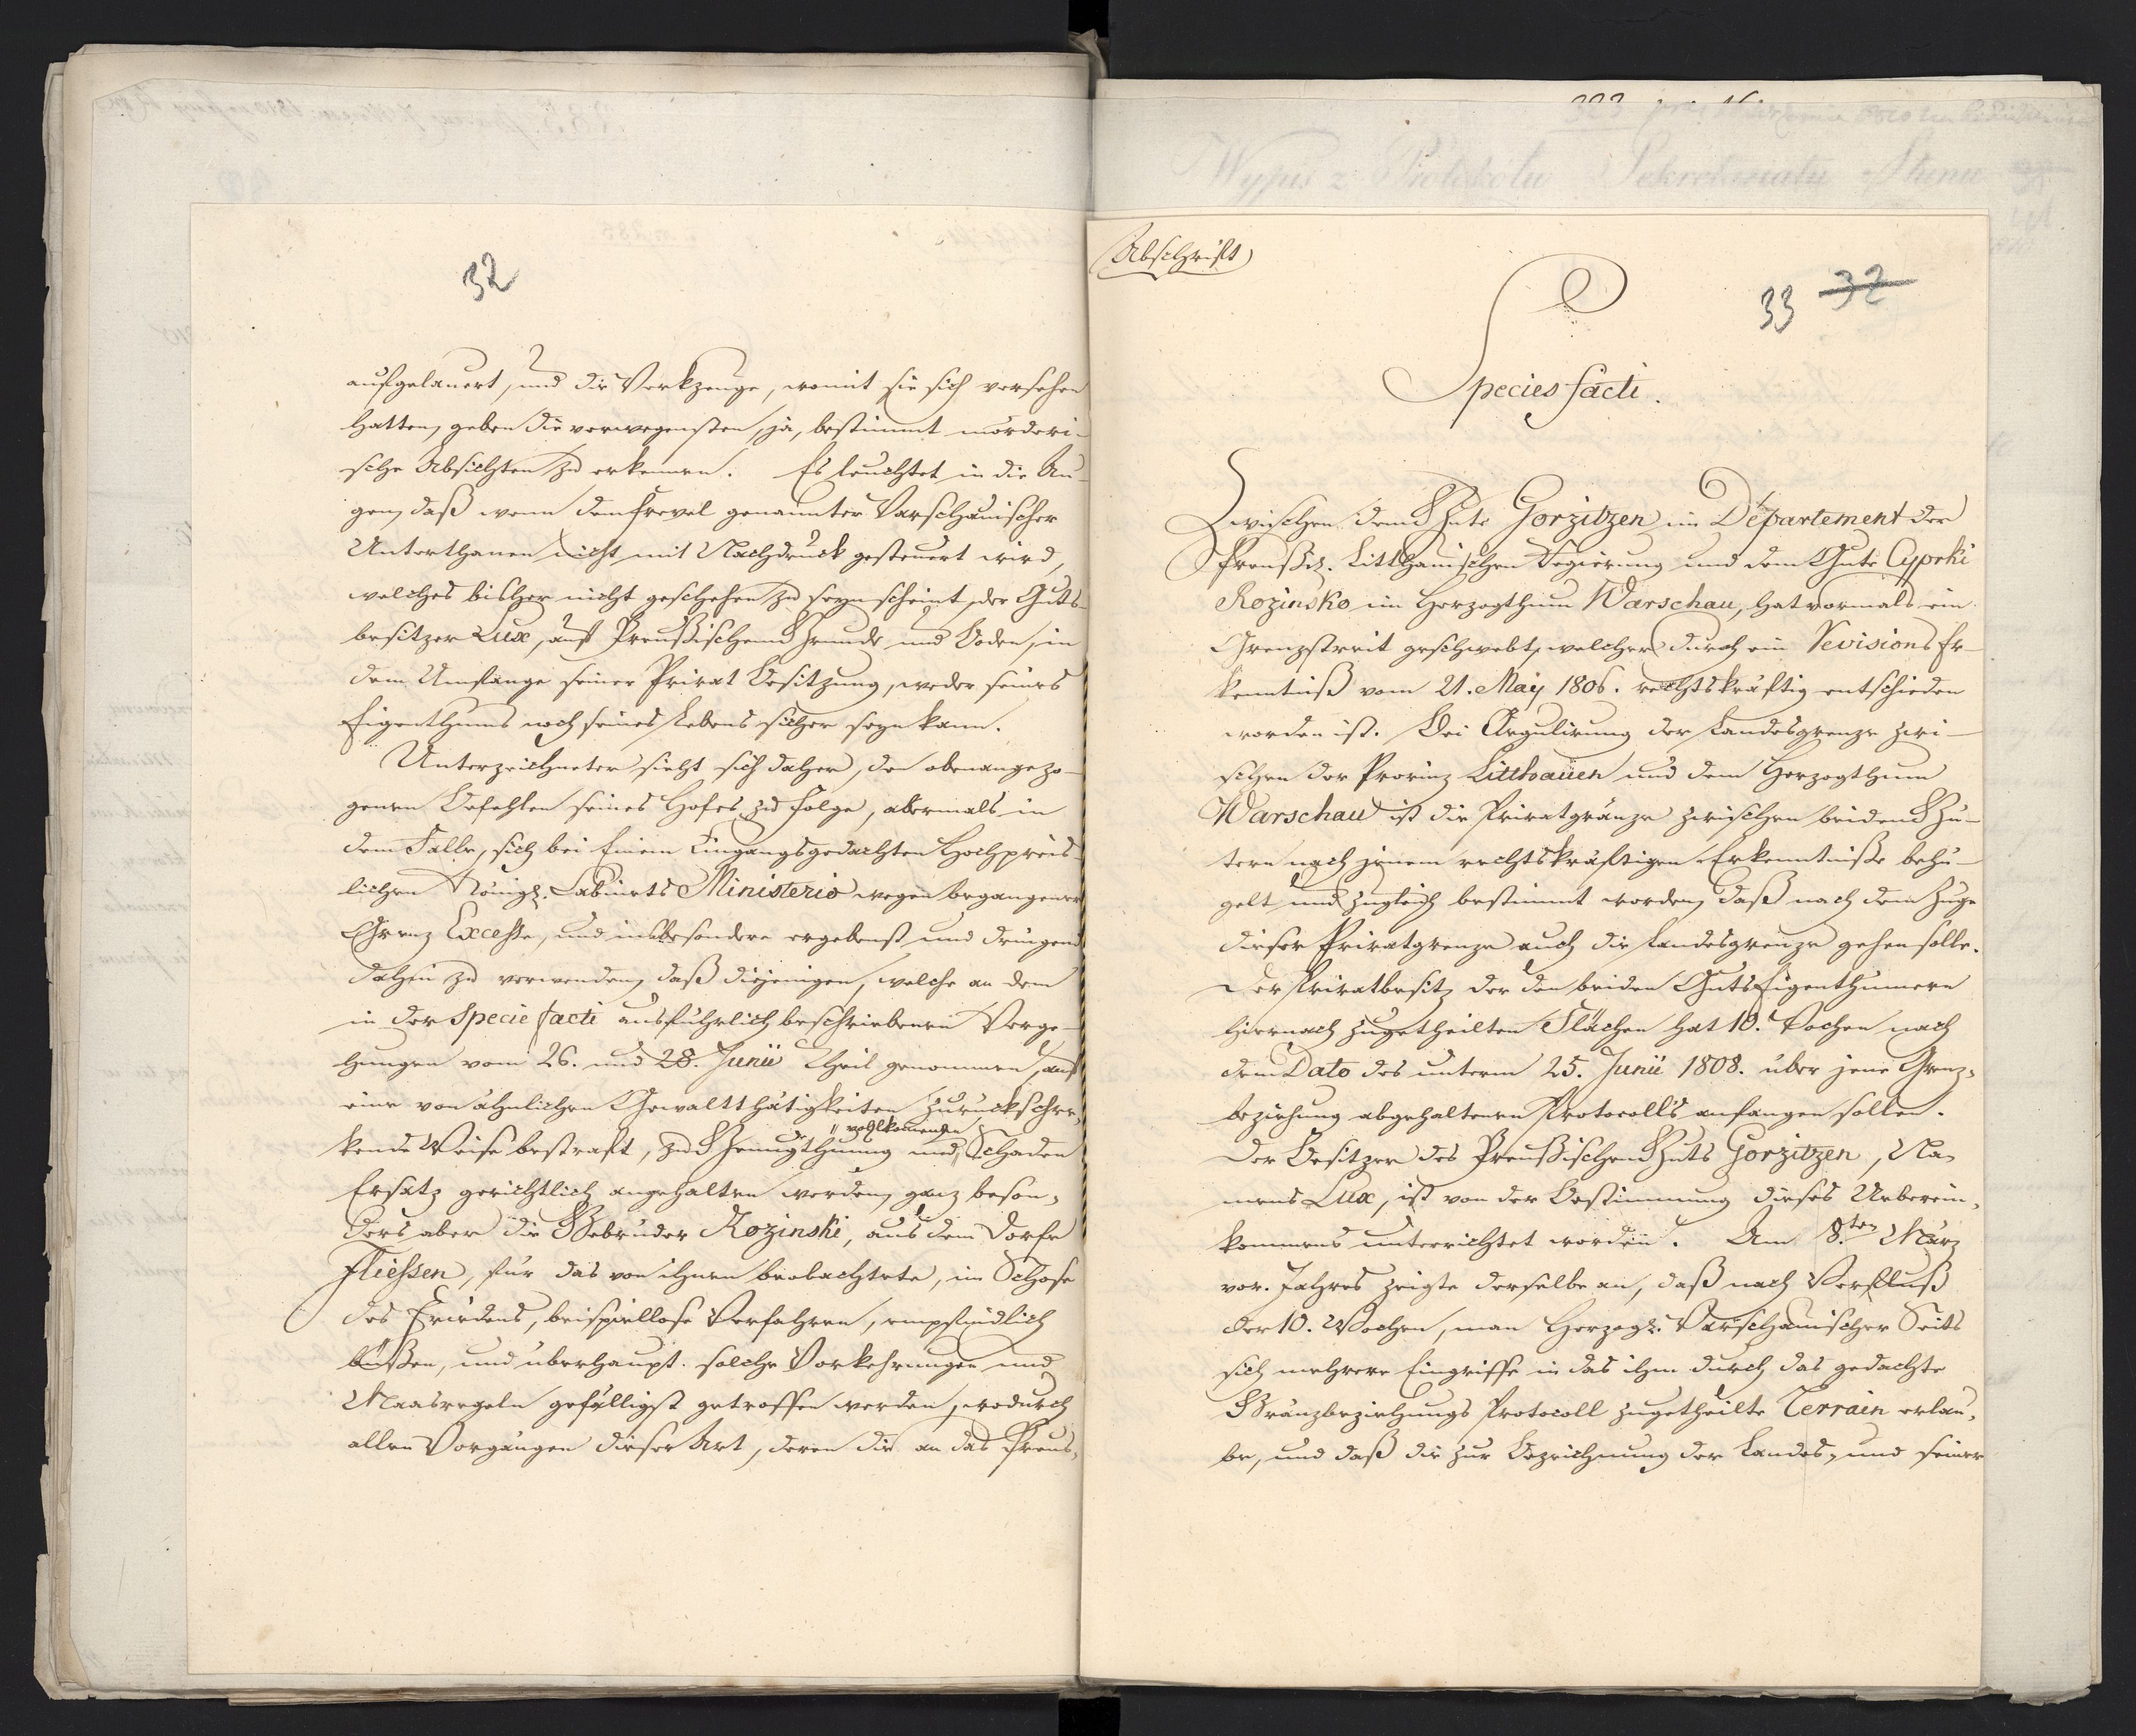 32
aufgelauert, und die Werkzeuge, womit sie sich versehen
hatten, geben die verwegensten, ja, bestimmt mörderi-
sche Absichten zu erkennen. Es leuchtet in die Au-
gen, daß wenn dem Frevel genannter Warschauischer
Unterthanen nicht mit Nachdruck gesteuert wird,
welches bisher nicht geschehen zu seyn scheint, der Guts-
besitzer Lux, auf Preußischem Grunde und Boden, in
dem Umfange seiner Privat Besitzung, weder seines
Eigenthums noch seines Lebens sicher seyn kann.
Unterzeichneter sieht sich daher, den obenangezo-
genen Befehlen seines Hofes zu Folge, abermals in
dem Falle, sich bei Einem Eingangsgedachten Hochpreis-
lichen Königl. Cabinets Ministerio wegen begangener
Grenz Excesse, und insbesondere ergebenst und dringend
dahin zu verwenden, daß diejenigen, welche an dem
in der Specie facti ausführlich beschriebenen Verge-
hungen vom 26. und 28. Junii Theil genommen, auf
eine von ähnlichen Gewaltthätigkeiten zurückschre-
vollkommenen
kende Weise bestraft, zu Genugthuung und Schaden
Ersatz gerichtlich angehalten werden, ganz beson-
ders aber die Gebrüder Rozinski, aus dem Dorfe
Fliessen, für das von ihnen beobachtete, im Schose
des Friedens, beispiellose Verfahren, empfindlich
büßen, und überhaupt solche Vorkehrungen und
Maasregeln gefälligst getroffen werden, wodurch
allen Vorgängen dieser Art, deren die an das Preus-
Abschrift
33 32
Species facti.
Zwischen dem Gute Gorzitzen im Département der
Preußis. Litthauischen Regierung und dem Gute Cyprki
Rozinsko im Herzogthum Warschau, hat vormals ein
Grenzstreit geschwebt, welcher durch ein Revisions Er-
kenntniß vom 21. May 1806. rechtskräftig entschieden
worden ist. Bei Regulirung der Landesgrenze zwi-
schen der Provinz Litthauen und dem Herzogthum
Warschau ist die Privatgränze zwischen beiden Gü-
tern nach jenem rechtskräftigen Erkenntniße behü-
gelt und zugleich bestimmt worden, daß nach dem Zuge
dieser Privatgrenze auch die Landesgrenze gehen solle.
Der Privatbesitz der den beiden Guts Eigenthümern
hiernach zugetheilten Flächen hat 10. Wochen nach
dem Dato des unterm 25. Junii 1808. über jene Grenz-
beziehung abgehaltenen Protocolls anfangen sollen.
Der Besitzer des Preußischen Guts Gorzitzen, Na-
mens Lux, ist von der Bestimmung dieses Ueberein-
kommens unterrichtet worden. Am 8.ten März
vor. Jahres zeigte derselbe an, daß nach Verfluß
der 10. Wochen, man Herzogl. Warschauischer Seits
sich mehrere Eingriffe in das ihm durch das gedachte
Gränzbeziehungs Protocoll zugetheilte Terrain erlau-
be, und daß die zur Bezeichnung der Landes- und seiner